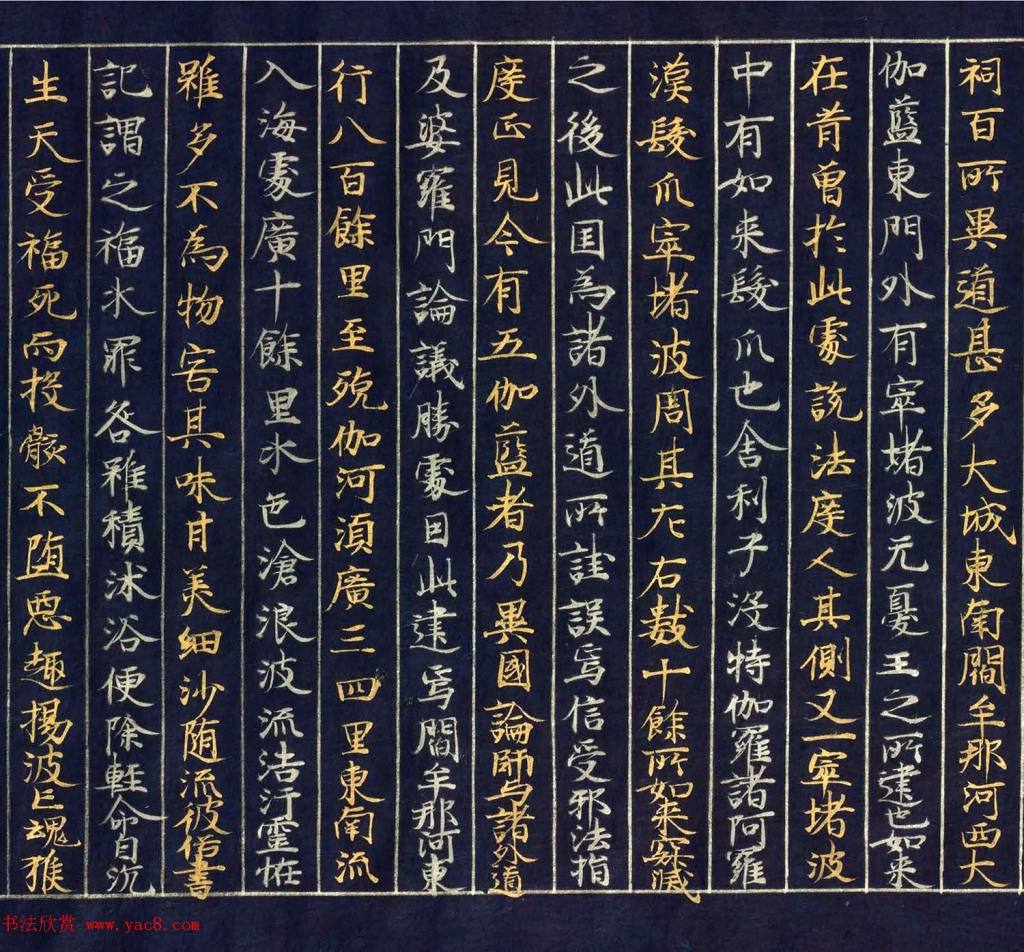 祠百所異道甚多大城東南閻牟那河西大
伽藍東門外有窣堵波无憂王之所建也如来
在昔曾於此處說法度人其側又一窣堵波
中有如来髮爪也舍利子没特伽羅諸阿羅
漢髮爪窣堵波周其左右数十餘所如来寂滅
之後此国為諸外道所詿誤焉信受邪法捐
廢正見今有五伽藍者乃異國論師与諸外道
及婆羅門論議勝處因此建焉閻牟那河東
行八百餘里至殑伽河源廣三四里東南流
入海處廣十餘里水色滄浪波流浩汗靈怪
雖多不為物害其味甘美細沙随流彼俗書
記謂之福水罪咎雖積沐浴便除軽命自沉
生天受福死而投骸不堕悪趣揚波亡魂獲
书法欣赏 www.yac8.com